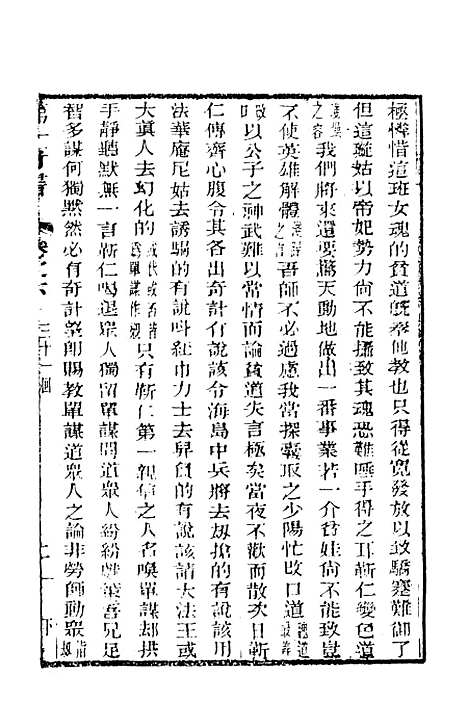 極憐惜這班女魂的貧道旣奉他教也只得從寬發放以致驕蹇難御了
但這璇姑以帝妃勢力尚不能攝致其魂恐難唾手得之耳靳仁變色道
之容我們將來還要驚天動地做出一番事業若一介貧娃尚不能致豈
不使英雄解體吾師不必過慮我當探囊取之少陽忙改口道
以公子之神武難以常情而論貧道失言極矣當夜不歡而散次日靳
仁傳齊心腹令其各出奇計有說該令海島中兵將去刼搶的有說該用
法華庵尼姑去誘騙的有說叫紅巾力士去舁負的有說該請大法王或
大眞人去幻化的或代或者諸爲單謀作襯只有靳仁第一親信之人名喚單謀却拱
手靜聽默無一言靳仁喝退衆人獨留單謀問道衆人紛紛獻策吾兄足
智多謀何獨默然必有奇計望卽賜教單謀道衆人之論非勞師動衆
第一奇書 卷之六 二十一回